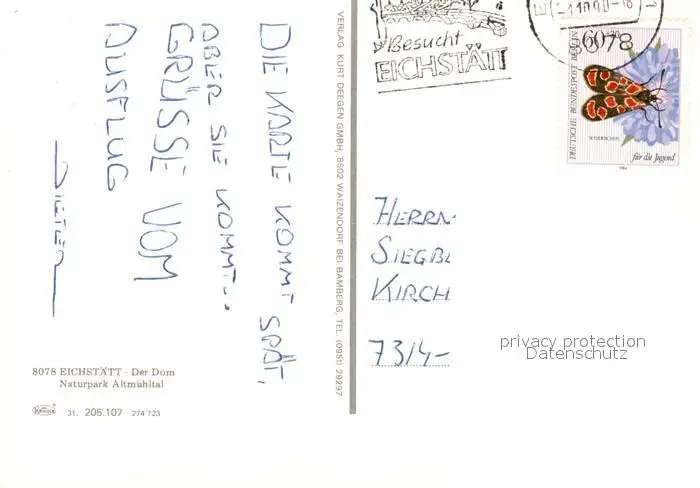 DIE KARTE KOMMT SPÄT,
ABER SIE KOMMT...
GRÜSSE VOM
AUSFLUG
DIETER
8078 EICHSTÄTT - Der Dom
Naturpark Altmühltal
31. 205.107 274 723
VERLAG KURT DEEGEN GMBH, 8602 WAIZENDORF BEI BAMBERG, TEL. (0951) 29297
Besucht
EICHSTÄTT
8078
60+30
DEUTSCHE BUNDESPOST BERLIN
für die Jugend
1984
HERRN
SIEGB
KIRCH
7314-
privacy protection
Datenschutz